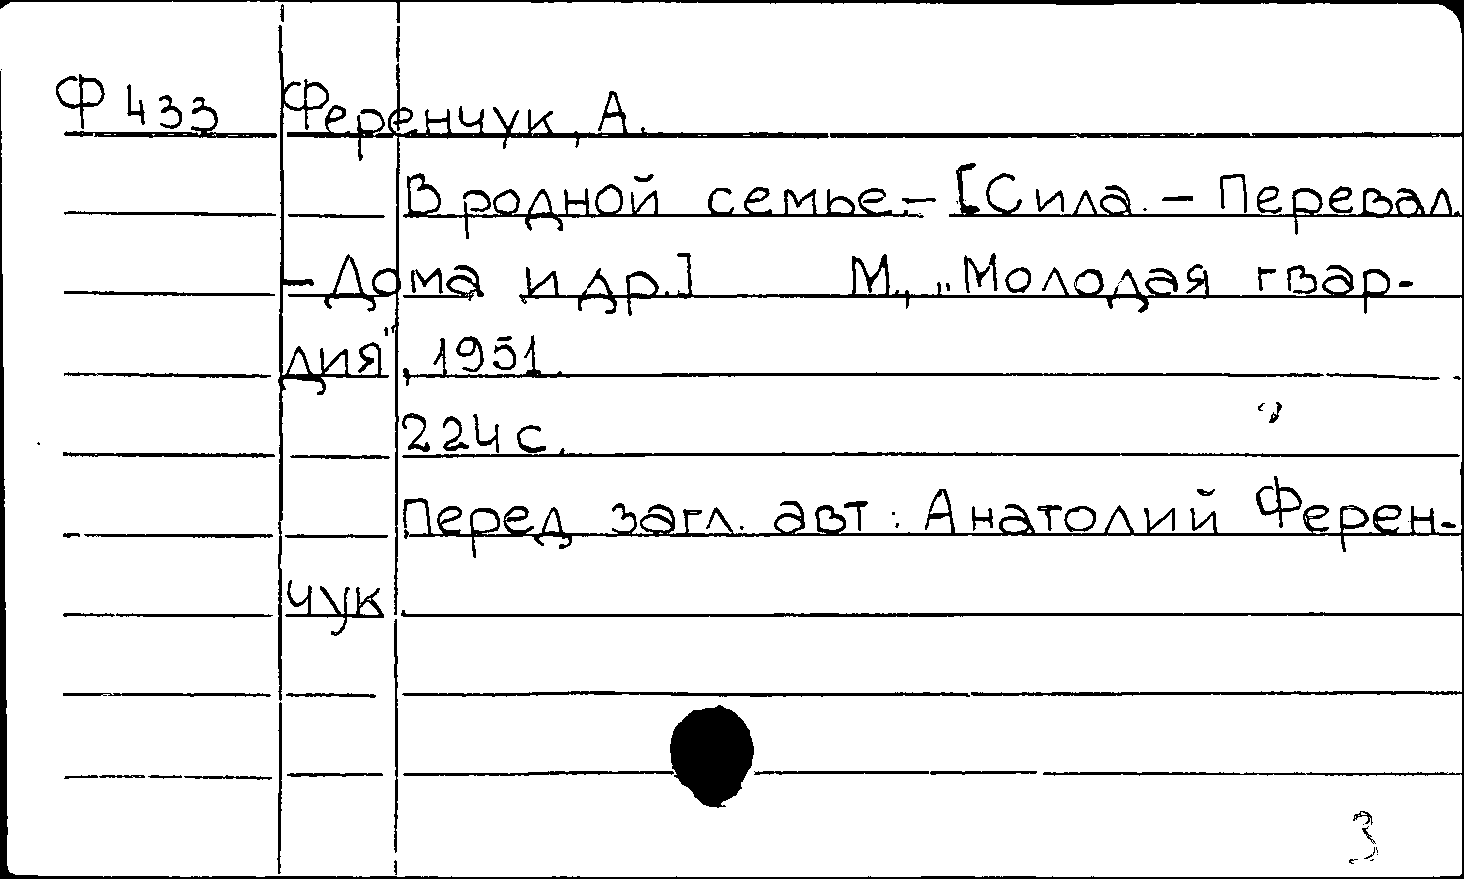 Ф 433 Ференчук, А.
В родной семье.- [Сила. - Перевал.
- Дома и др.] М., „Молодая гвар-
дия", 1951.
224 с.
Перед загл. авт.: Анатолий Ферен-
чук.
3